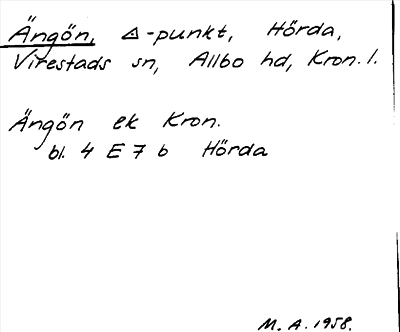 Ängön, △-punkt, Hörda,
Virestads sn, Allbo hd, Kron. l.
Ängön ek Kron.
bl. 4 E 7 b Hörda
M. A. 1958.